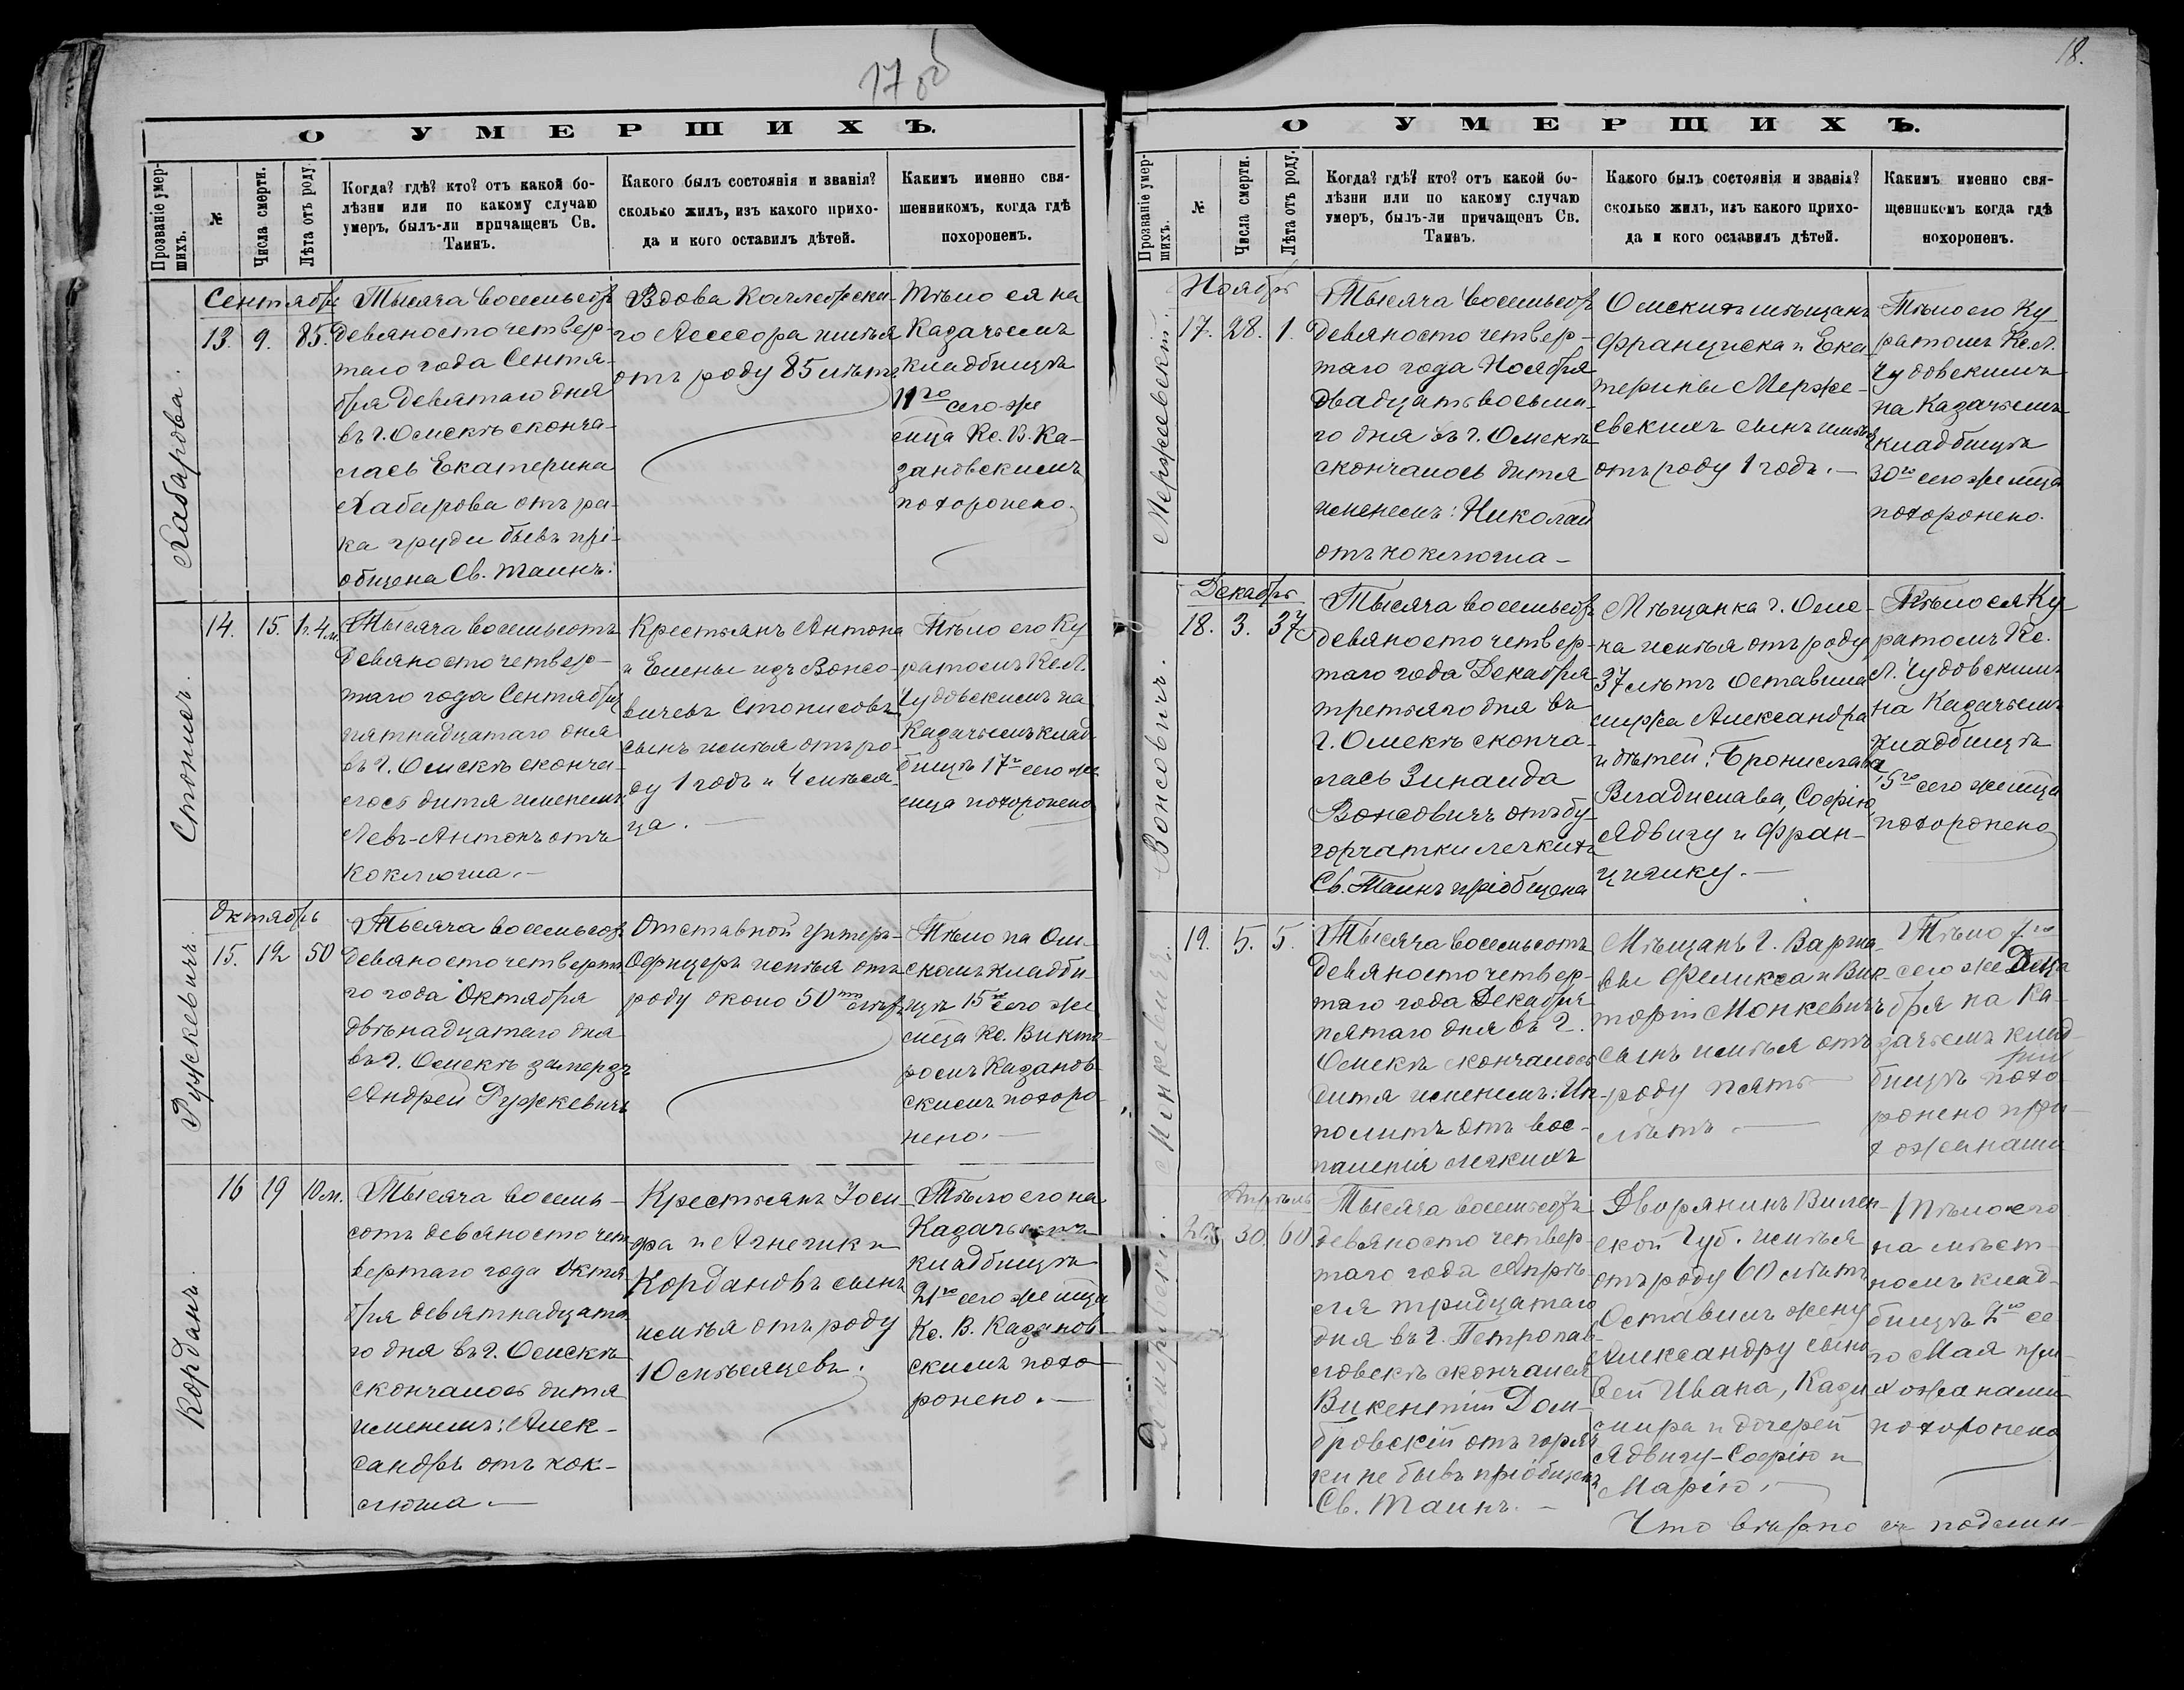 17 об
О УМЕРШИХЪ.
Прозваніе умер-
шихъ.
№
Числа смерти.
Лѣта отъ роду.
Когда? гдѣ? кто? отъ какой бо-
лѣзни или по какому случаю
умеръ, былъ-ли причащенъ Св.
Таинъ.
Какого былъ состоянія и званія?
сколько жилъ, изъ какого прихо-
да и кого оставилъ дѣтей.
Какимъ именно свя-
щенникомъ, когда гдѣ
похороненъ.
Хабарова.
Сентябрь
13. 9. 85.
Тысяча восемьсотъ
девяносто четвер-
таго года Сентя-
бря девятаго дня
въ г. Омскѣ сконча-
лась Екатерина
Хабарова отъ ра-
ка груди бывъ прі-
общена Св. Таинъ.
Вдова Коллежска-
го Асесора имѣя
отъ роду 85 лѣтъ
Тѣло ея на
Казачьемъ
кладбищѣ
11го сего же
мца Кс. В. Ка-
зановскимъ
похоронено.
Стопись.
14. 15. 1г. 4м.
Тысяча восемьсотъ
девяносто четвер-
таго года Сентября
пятнадцатаго дня
въ г. Омскѣ сконча-
лось дитя именемъ
Левъ-Антонъ отъ
коклюша.
Крестьянъ Антона
и Елены изъ Вонсо-
вичевъ Стописовъ
сынъ имѣя отъ ро-
ду 1 годъ и 4 мѣся-
ца.
Тѣло его Ку
ратомъ Кс. Л.
Чудовскимъ на
Казачьемъ клад-
бищѣ 17го сего же
мца похоронено
Ружкевичъ.
Октябрь
15. 12 50
Тысяча восемьсотъ
девяносто четверта
го года Октября
двѣнадцатаго дня
въ г. Омскѣ замерзъ
Андрей Ружкевичъ
Отставной Унтеръ-
Офицеръ имѣя отъ
роду около 50ти лѣтъ
Тѣло на Ом-
скомъ кладби-
щѣ 15го сего же
мца Кс. Викто-
ромъ Казанов-
скимъ похоро-
нено.
Корданъ.
16 19 10 м.
Тысяча восемь-
сотъ девяносто чет-
вертаго года Октя-
бря девятнадцата-
го дня въ г. Омскѣ
скончалось дитя
именемъ: Алек-
сандръ отъ кок-
люша.
Крестьянъ Іоси-
фа и Агнешки
Кордановъ сынъ
имѣя отъ роду
10 мѣсяцевъ.
Тѣло его на
Казачьемъ
кладбищѣ
21го сего же мца
Кс. В. Казанов
скимъ похо-
ронено.
18.
О УМЕРШИХЪ.
Прозваніе умер-
шихъ.
№
Числа смерти.
Лѣта отъ роду.
Когда? гдѣ? кто? отъ какой бо-
лѣзни или по какому случаю
умеръ, былъ-ли причащенъ Св.
Таинъ.
Какого былъ состоянія и званія?
сколько жилъ, изъ какого прихо-
да и кого оставилъ дѣтей.
Какимъ именно свя-
щенникомъ когда гдѣ
похороненъ.
Мержеевскій.
Ноябрь
17. 28. 1.
Тысяча восемьсотъ
девяносто четвер-
таго года Ноября
двадцать восьма-
го дня въ г. Омскѣ
скончалось дитя
именемъ: Николай
отъ коклюша
Омскихъ мѣщанъ
Франциска и Ека-
терины Мерже-
евскихъ сынъ имѣя
отъ роду 1 годъ.
Тѣло его Ку
ратомъ Кс. Л.
Чудовскимъ
на Казачьемъ
кладбищѣ
30го сего же мца
похоронено.
Вонсовичъ.
Декабрь
18. 3. 37
Тысяча восемьсотъ
девяносто четвер-
таго года Декабря
третьяго дня въ
г. Омскѣ сконча-
лась Зинаида
Вонсовичъ отъ бу-
горчатки легкихъ
Св. Таинъ пріобщена
Мѣщанка г. Омс-
ка имѣя отъ роду
37 лѣтъ Оставила
мужа Александра
и дѣтей: Бронислава,
Владислава, Софію,
Ядвигу и Фран-
цишку.
Тѣло ея Ку
ратомъ Кс.
Л. Чудовскимъ
на Казачьемъ
кладбищѣ
5го сего же мца
похоронено
Монкевичъ.
19. 5. 5.
Тысяча восемьсотъ
девяносто четвер-
таго года Декабря
пятаго дня въ г.
Омскѣ скончалось
дитя именемъ: Ип-
политъ отъ вос-
паленія легкихъ
Мѣщанъ г. Варша-
вы Феликса и Вик-
торіи Монкевичъ
сынъ имѣя отъ
роду пять
лѣтъ.
Тѣло 7го
сего же Дека
бря на Ка-
зачьемъ клад-
бищѣ похо-
ронено при-
хожанами
Домбровскій.
Апрѣль
20. 30. 60.
Тысяча восемьсотъ
девяносто четвер-
таго года Апрѣ-
ля тридцатаго
дня въ г. Петропав-
ловскѣ скончался
Викентій Дом-
бровскій отъ горяч
ки не бывъ пріобщенъ
Св. Таинъ.
Дворянинъ Вилен-
ской Губ. имѣя
отъ роду 60 лѣтъ
Оставилъ жену
Александру сыно
вей Ивана, Кази
мира и дочерей
Ядвигу-Софію и
Марію.
Тѣло его
на мѣст-
номъ клад-
бищѣ 2го се
го Мая при-
хожанами
похоронено
Что вѣрно съ подлин-